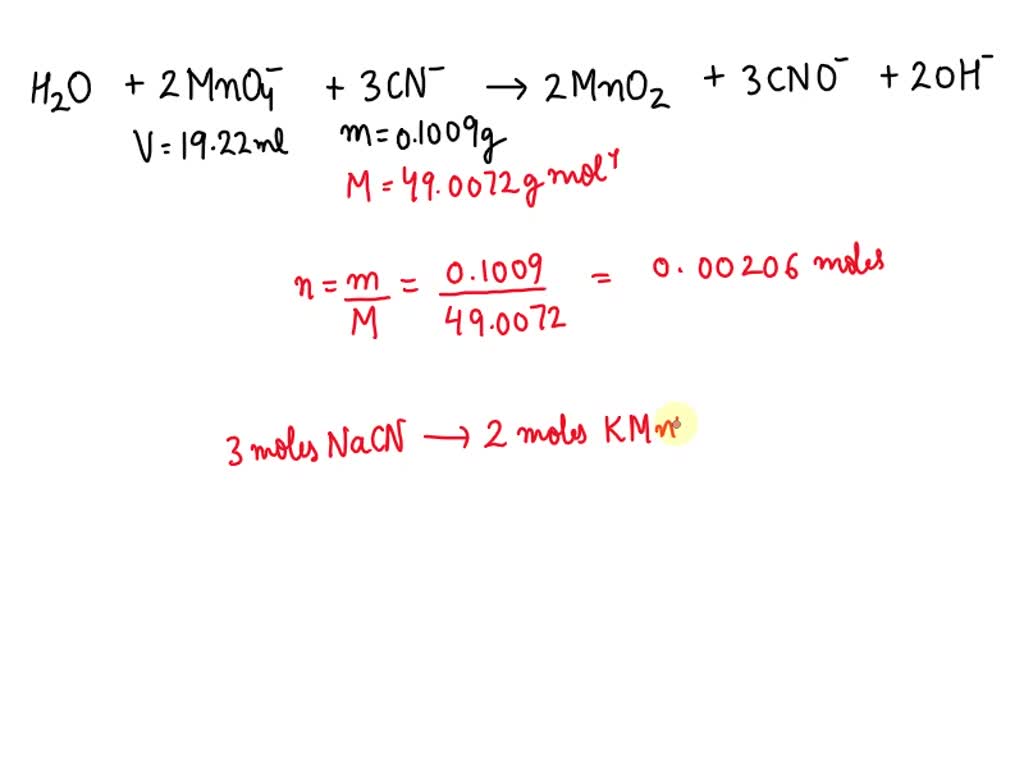 H₂O + 2MnO₄⁻ + 3CN⁻ → 2MnO₂ + 3CNO⁻ + 2OH⁻
V = 19.22 ml m = 0.1009 g
M = 49.0072 g mol⁻¹
n = m/M = 0.1009/49.0072 = 0.00206 moles
3 moles NaCN → 2 moles KMn